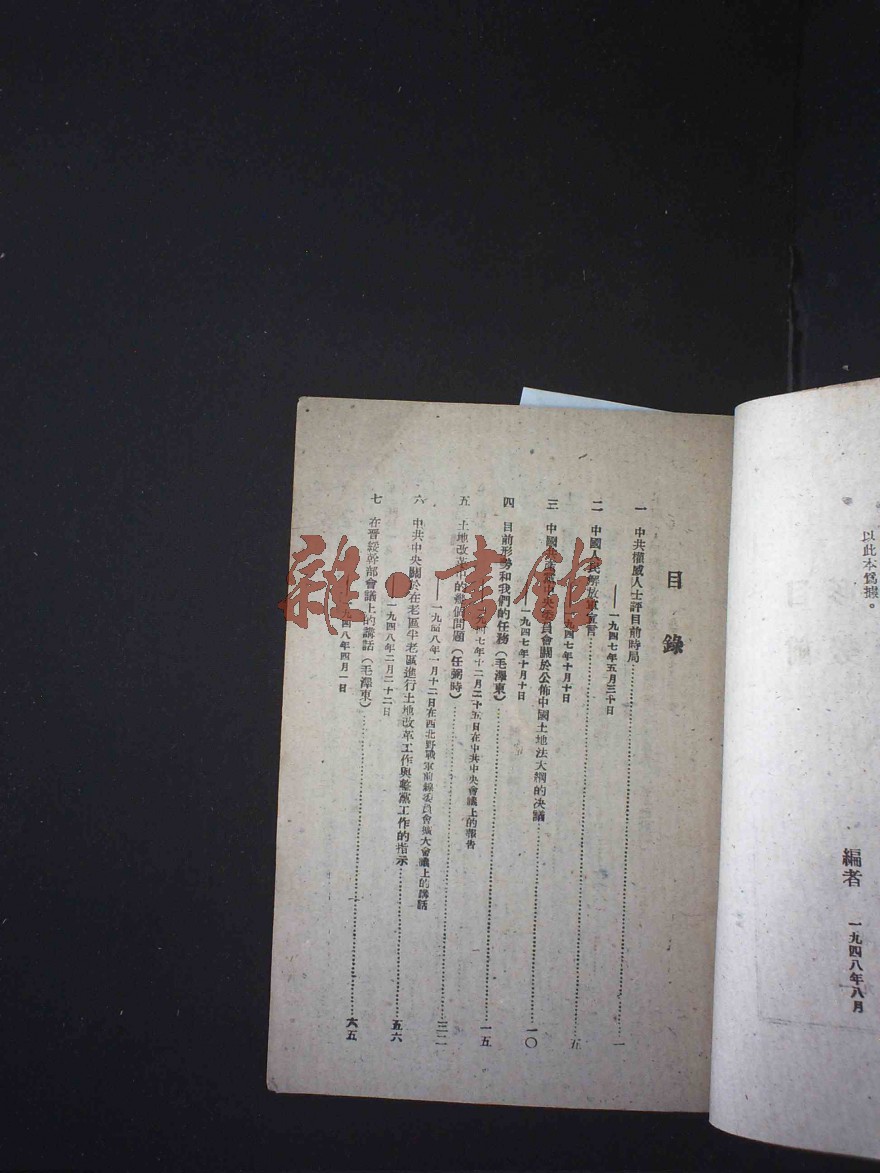 以此本爲據。
編者 一九四八年八月
目錄
一 中共權威人士評目前時局……一
——一九四七年五月三十日
二 中國人民解放軍宣言……五
一九四七年十月十日
三 中國共產黨中央委員會關於公佈中國土地法大綱的決議……一〇
一九四七年十月十日
四 目前形勢和我們的任務(毛澤東)……一五
一九四七年十二月二十五日在中共中央會議上的報告
五 土地改革中的幾個問題(任弼時)……三二
——一九四八年一月十二日在西北野戰軍前線委員會擴大會議上的講話
六 中共中央關於在老區半老區進行土地改革工作與整黨工作的指示……五六
一九四八年二月二十二日
七 在晋綏幹部會議上的講話(毛澤東)……六五
一九四八年四月一日
雜·書館